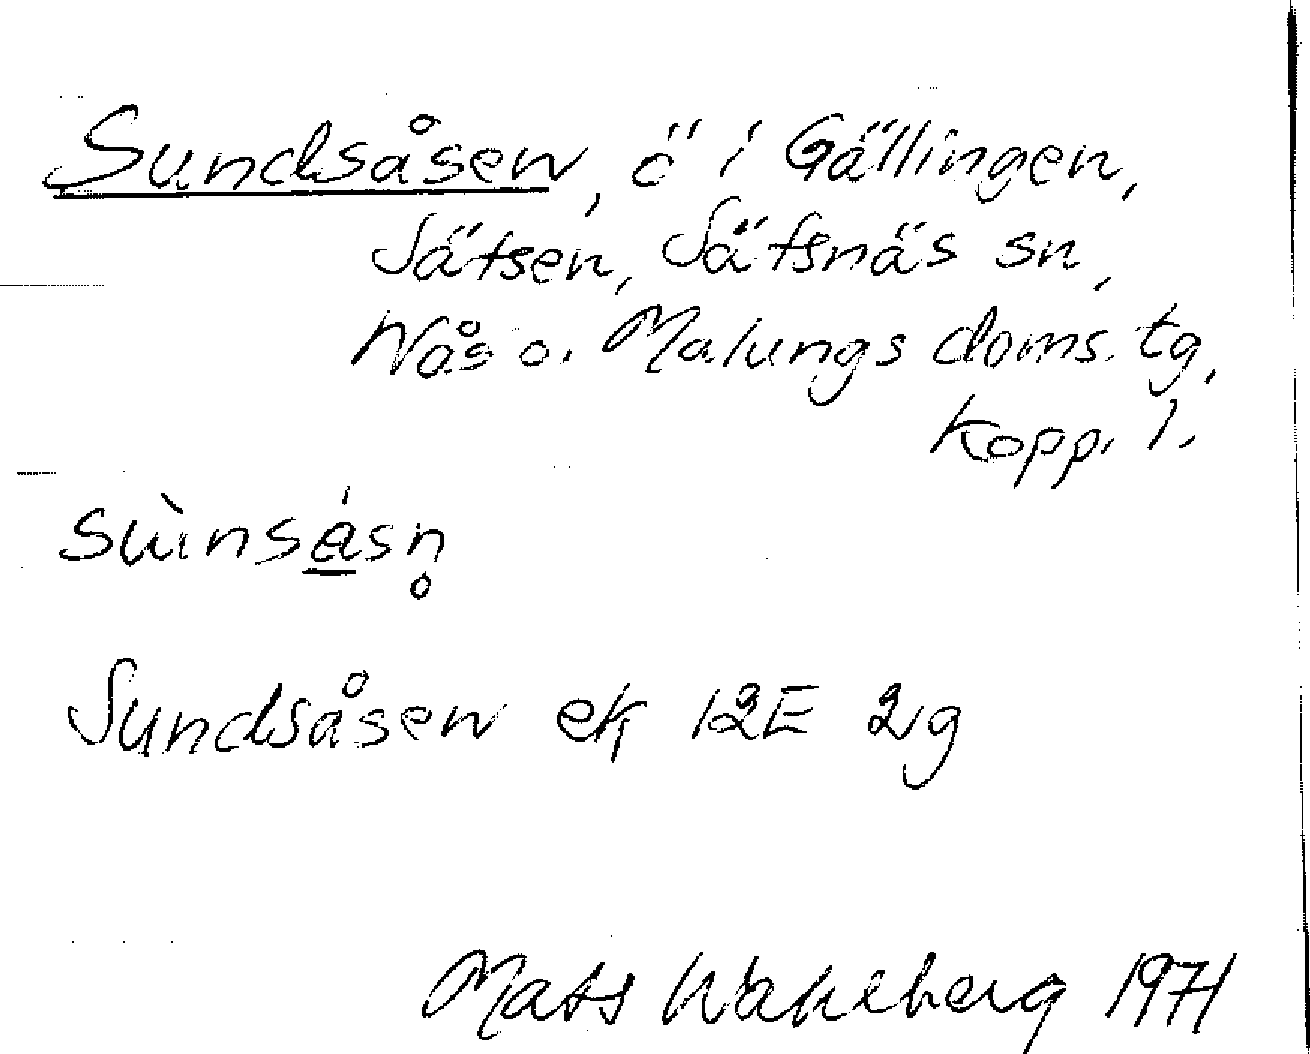 Sundsåsen, ö i Gällingen,
Sätsen, Sätsnäs sn,
Nås o. Malungs doms. tg,
Kopp. l.
sùnsásn̥
Sundsåsen ek 12E 2g
Mats Wahlberg 1971